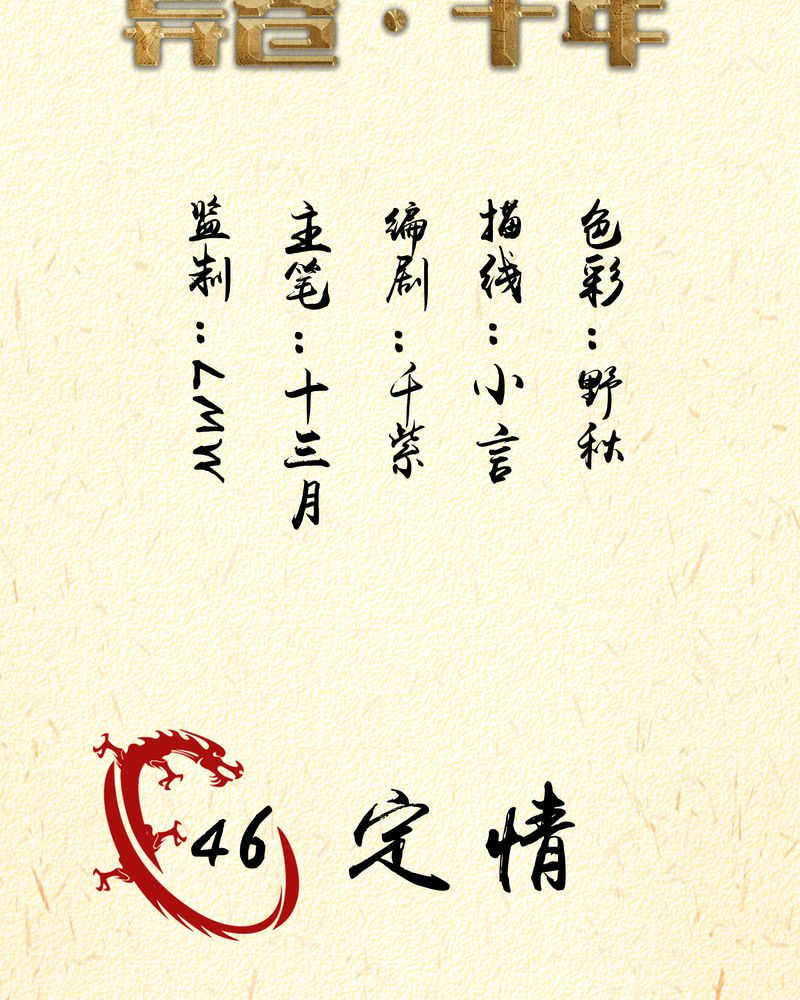 监制：MW7
主笔：十三月
编剧：千紫
描线：小言
色彩：野秋
46 定情